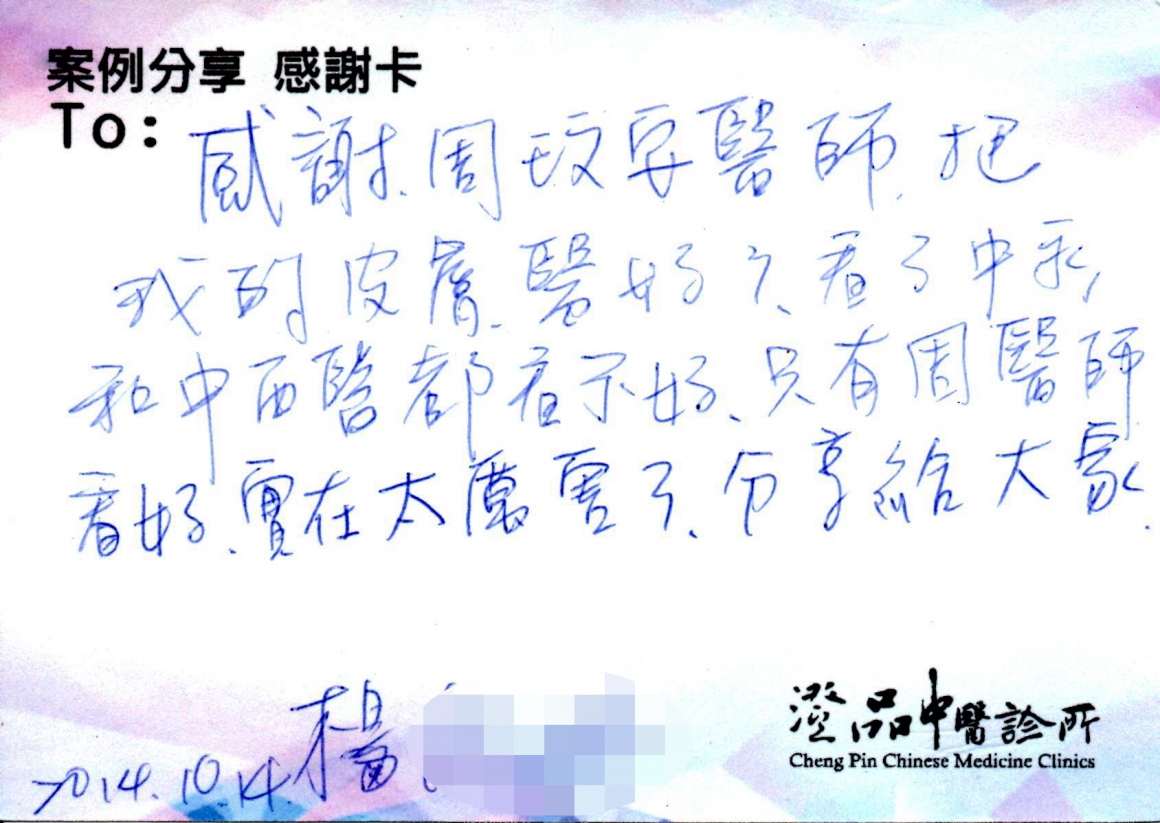 案例分享 感謝卡
To: 感謝、周玟妟醫師、把
我的皮膚、醫好了、看了中
和中西醫都看不好、只有周醫師
看好、實在太厲害了、分享給大家.
2014.10.14. 楊
澄品中醫診所
Cheng Pin Chinese Medicine Clinics